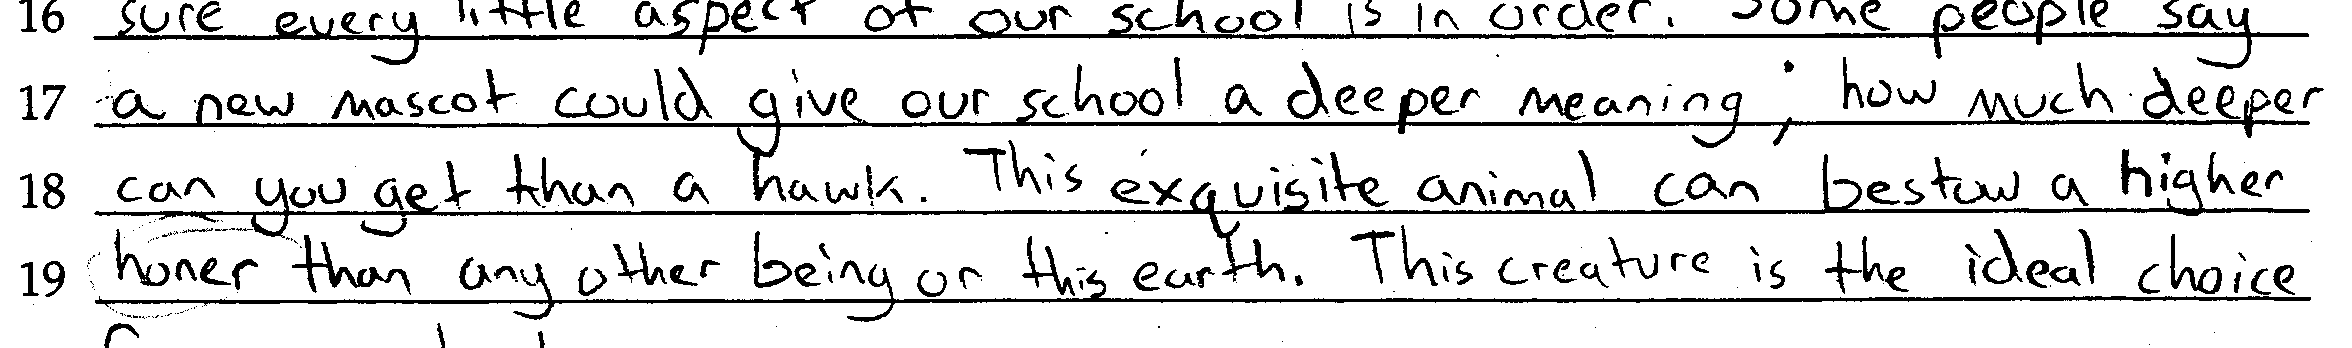 16 sure every little aspect of our school is in order. Some people say
17 a new mascot could give our school a deeper meaning; how much deeper
18 can you get than a hawk. This exquisite animal can bestow a higher
19 honer than any other being on this earth. This creature is the ideal choice